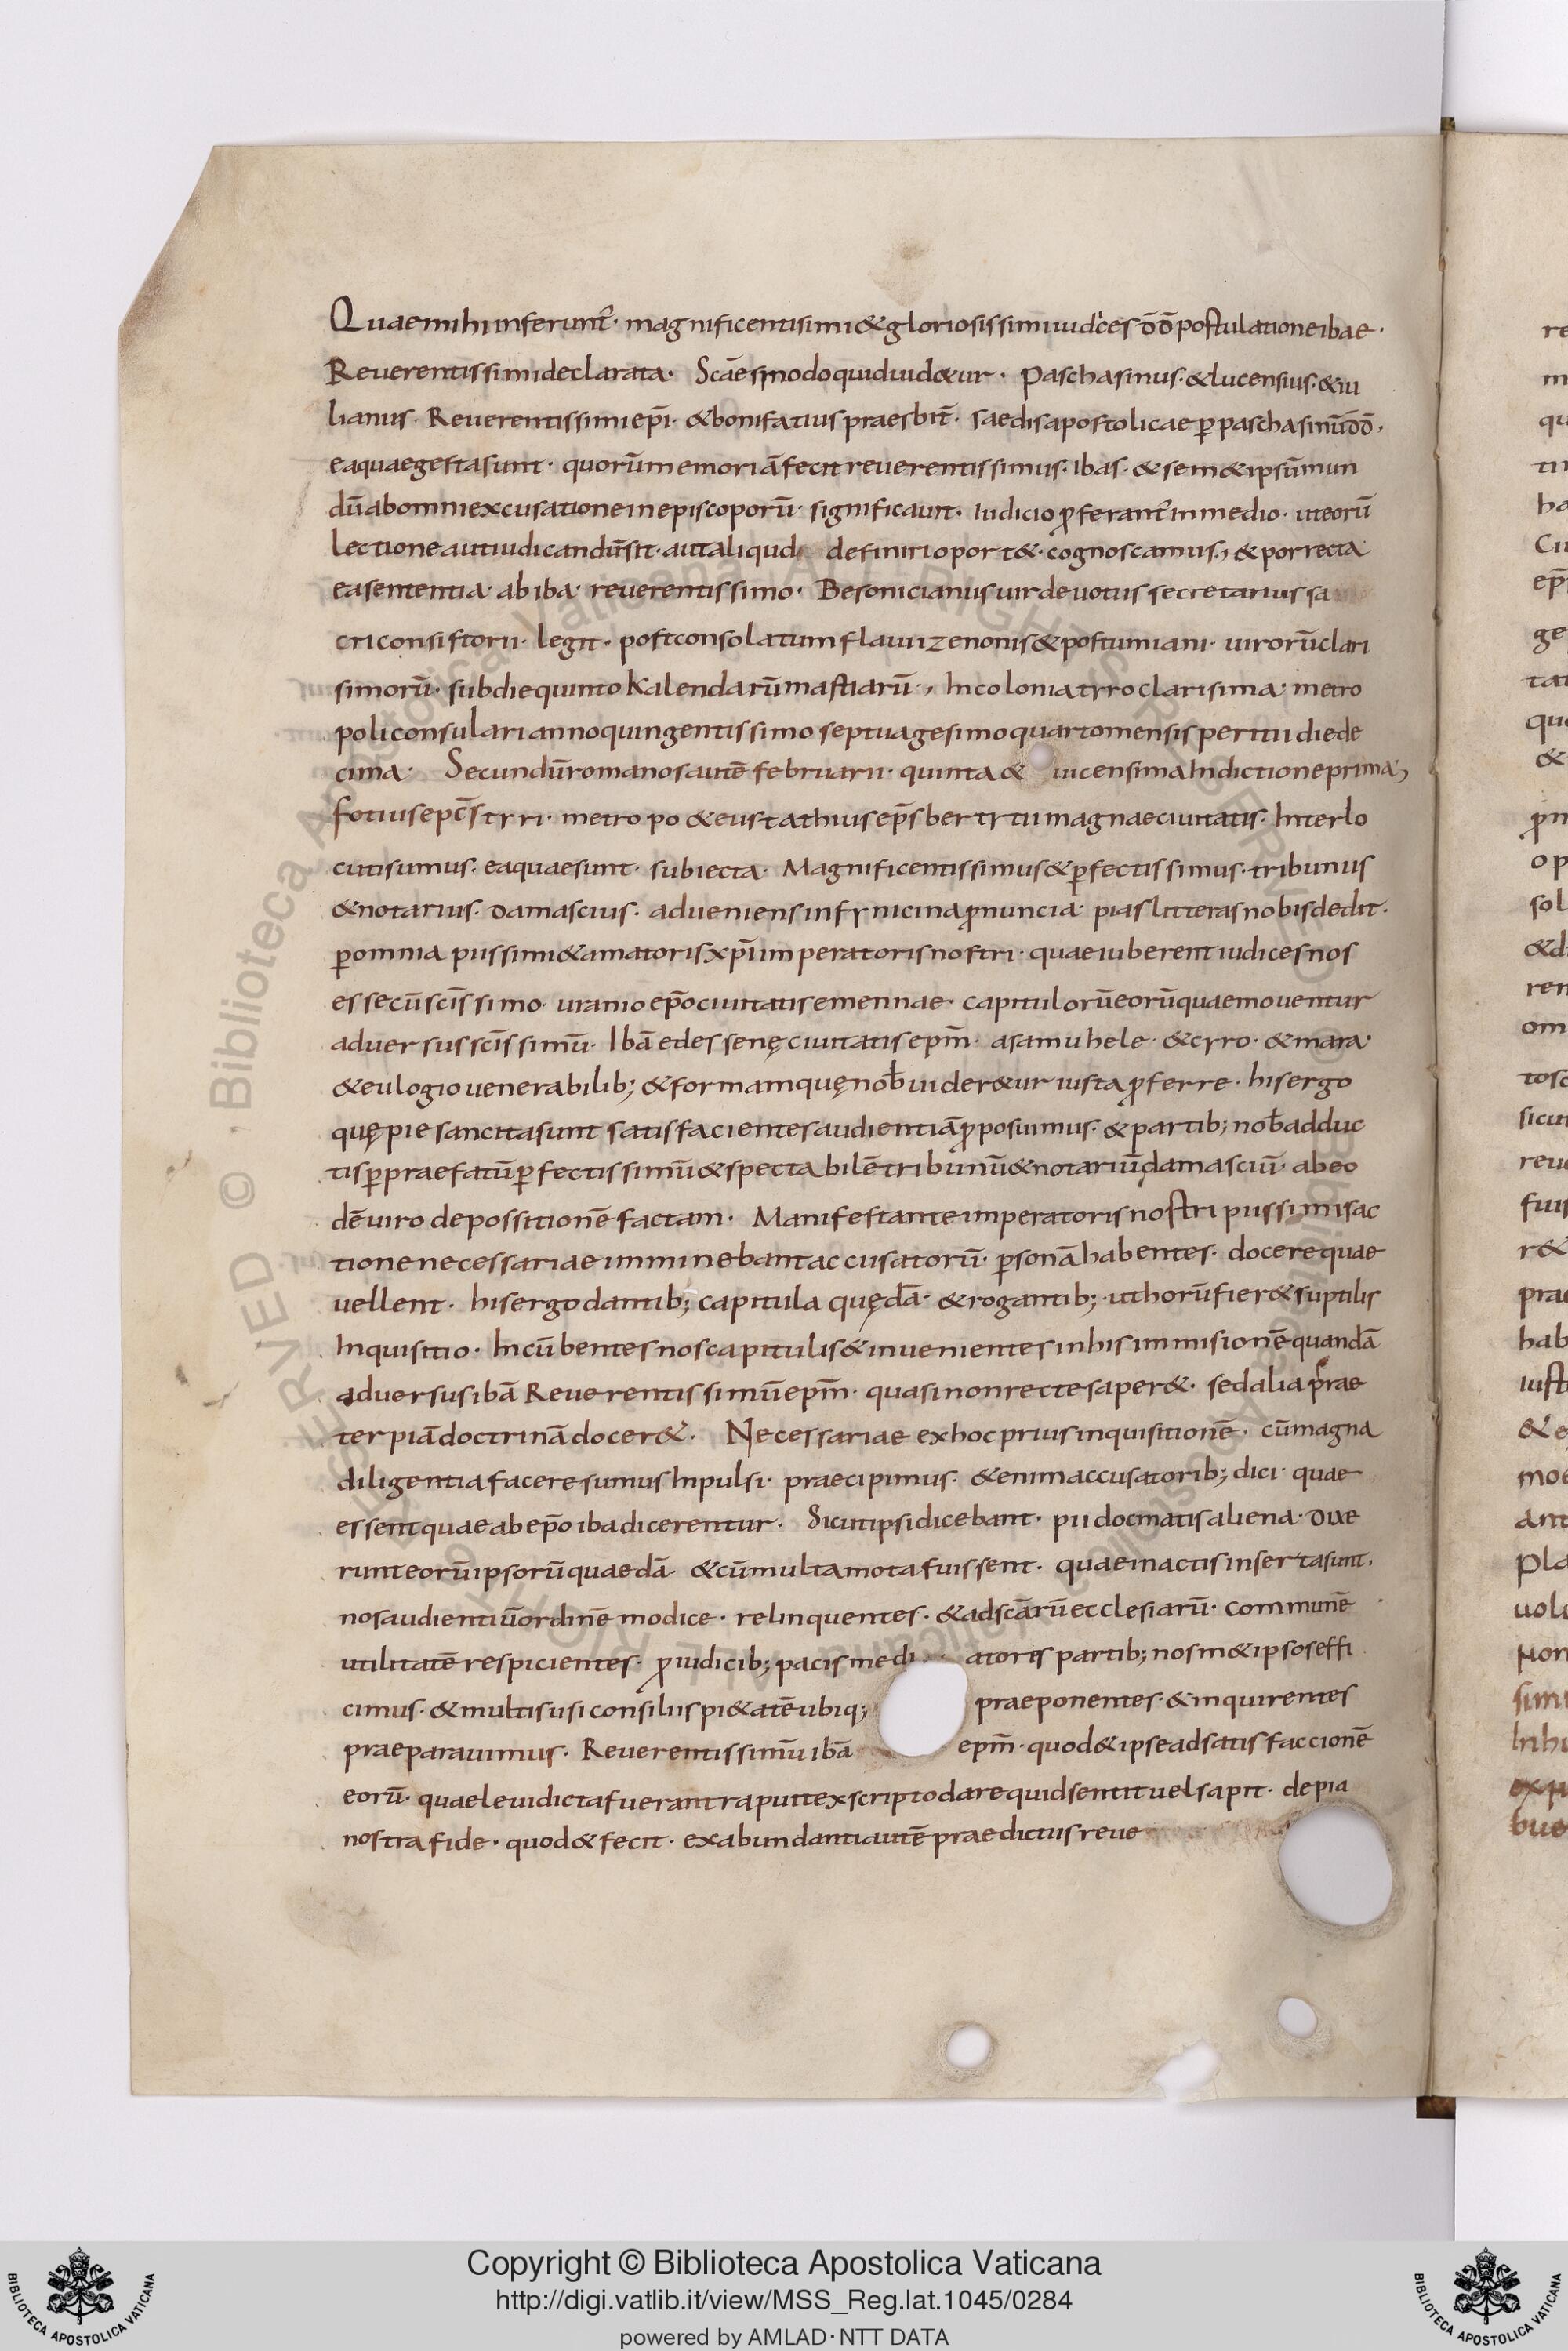 Quae mihi inferunt̃· magnificentisimi & gloriosissimi iudc̃es d̄d̄ postulatione ibae·
Reuerentissimi declarata· Scāe sinodo quid uid&ur· Paschasinus· & lucensius· & iu
lianus· Reuerentissimi ep̄i· & bonifatius praesbit̄· saedis apostolicae p̱ paschasinū d̄d̄·
ea quae gesta sunt· quorū memoriā fecit reuerentissimus· ibas· & sem&ipsū mun
dū ab omni excusatione in episcoporū· significauit· Iudicio ꝓferant̃ in medio· ut eorū
lectione aut iudicandū sit· aut aliquid definiri oport&· cognoscamus, & porrecta
ea sententia· ab iba· reuerentissimo· Besonicianus uir deuotus secretarius sa
cri consistorii· legit· post consolatum flauii zenonis & postumiani· uirorū clari
simorū· sub die quinto Kalendarū mastiarū·, In colonia tyro clarisima· metro
poli consulari anno quingentissimo septuagesimo quarto mensis peritii die de
cima· Secundū romanos autē februarii· quinta & uicensima Indictione prima,
fotius epc̄s tyri· metro po & eustathius ep̄s bertytii magnae ciuitatis· Interlo
cuti sumus· ea quae sunt· subiecta· Magnificentissimus & p̱fectissimus· tribunus
& notarius· damascius· adueniens in fynicina ꝓnuncia· pias litteras nobis dedit·
p̱ omnia piissimi & amatoris xp̄i imperatoris nostri· quae iuberent iudices nos
esse cū sc̄issimo· uranio ep̄o ciuitatis emennae· capitulorū eorū quae mouentur
aduersus sc̄issimū· Ibā edessenę ciuitatis epm̄· a samuhele· & cyro· & mara·
& eulogio uenerabilib; & formam quę nob̄ uider&ur iusta ꝓferre· his ergo
quę pie sancita sunt satisfacientes audientiā ꝓposuimus· & partib; nob̄ adduc
tis p̱ praefatū p̱fectissimū & spectabilē tribunū & notariū damasciū· ab eo
dē uiro depossitionē factam· Manifestante imperatoris nostri piissimi sac
tione necessariae imminebant accusatorū· p̱sonā habentes· docere quae
uellent· his ergo dantib; capitula quędā· & rogantib; · ut horū fier& suptilis
Inquisitio· Incūbentes nos capitulis & inuenientes in his immisionē quandā
aduersus ibā Reuerentissimū epm̄· quasi non recte saper&· sed alia prae
ter piā doctrinā docer&· Necessariae ex hoc prius inquisitionē· cū magna
diligentia facere sumus Inpulsi· praecipimus· &enim accusatorib; dici· quae
essent quae ab ep̄o iba dicerentur· Sicut ipsi dicebant· pii docmatis aliena· dixe
runt eorū ipsorū quaedā· & cū multa mota fuissent· quae in actis inserta sunt·
nos audientiū ordinē modice· relinquentes· & ad sc̄arū ecclesiarū· commune͞
utilitatē respicientes· ꝓ iudicib; pacis medi atoris partib; nosm&ipsos effi
cimus· & multis usi consiliis pi&atē ubiq; praeponentes· & inquirentes
praeparauimus· Reuerentissimū ibā epm̄· quod & ipse ad satisfaccionē
eorū· quae leui dicta fuerant raputt ex scripto dare quid sentit uel sapit· de pia
nostra fide· quod & fecit· ex abundanti autē praedictus reue
Copyright © Biblioteca Apostolica Vaticana
http://digi.vatlib.it/view/MSS_Reg.lat.1045/0284
powered by AMLAD·NTT DATA